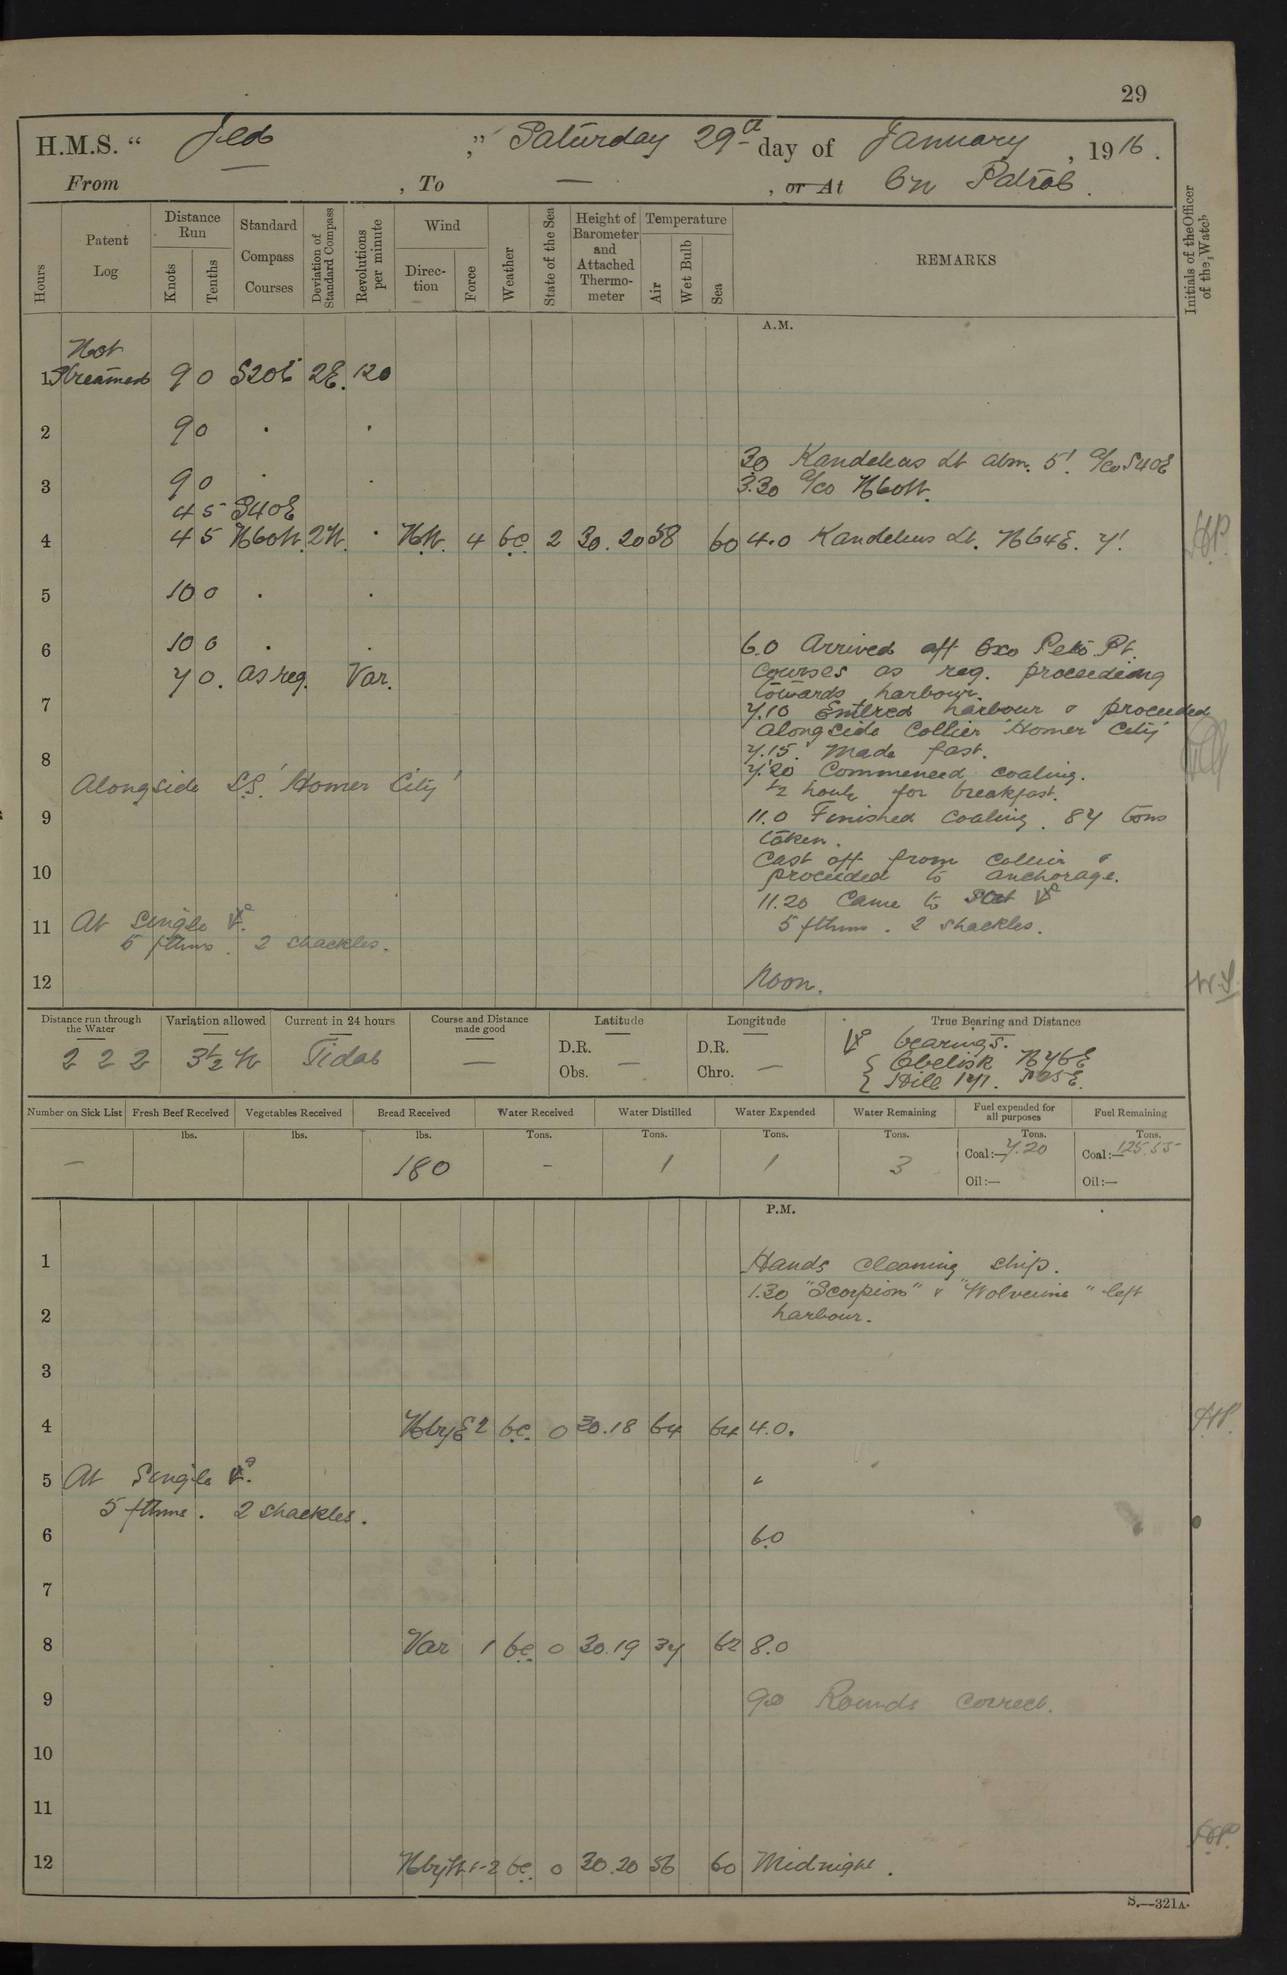 29
H.M.S. “ Jed ,” Saturday 29th day of January , 1916.
From — , To — , or At On Patrol.
Hours
Patent Log
Distance Run
Knots
Tenths
Standard Compass Courses
Deviation of Standard Compass
Revolutions per minute
Wind
Direction
Force
Weather
State of the Sea
Height of Barometer and Attached Thermometer
Temperature
Air
Wet Bulb
Sea
REMARKS
Initials of the Officer of the Watch
A.M.
Not
1 Streamed 9 0 S20E 2E. 120
2 9 0 . .
30 Kandeleus Lt abm. 5'. a/co S40E
3 9 0 . .
3.30 a/co N60W.
4 5 S40E
4 4 5 N60W. 2W. . NW. 4 bc 2 30.20 58 60 4.0 Kandeleus Lt. N64E. 7'. HP.
5 10 0 . .
6 10 0 . .
6.0 Arrived off Exo Peto Pt.
7 0. as req. Var.
Courses as req. proceeding
towards harbour.
7
7.10 Entered harbour & proceeded
alongside Collier 'Homer City'
8
7.15. Made fast.
7.20 Commenced coaling.
Alongside S.S. 'Homer City'
½ hour for breakfast.
9
11.0 Finished coaling. 87 tons
taken.
Cast off from Collier &
10
proceeded to anchorage.
11.20 Came to
11 At Single
5 fthms. 2 shackles.
5 fthms. 2 shackles.
12 Noon. W.S.
Distance run through the Water
222
Variation allowed
3½ W
Current in 24 hours
Tidal
Course and Distance made good
—
Latitude
D.R.
Obs. —
Longitude
D.R.
Chro. —
True Bearing and Distance
bearings.
Obelisk N76E
Hill 171.
Number on Sick List
—
Fresh Beef Received
lbs.
Vegetables Received
lbs.
Bread Received
lbs.
180
Water Received
Tons.
-
Water Distilled
Tons.
1
Water Expended
Tons.
1
Water Remaining
Tons.
3
Fuel expended for all purposes
Tons.
Coal:— 7.20
Oil:—
Fuel Remaining
Tons.
Coal:— 125.55
Oil:—
P.M.
1 Hands cleaning ship.
1.30 "Scorpion" & "Wolverine" left
2 harbour.
3
4 NbyE 2 bc. 0 30.18 64 64 4.0. HP.
5 At Single
5 fthms. 2 shackles.
6 6.0
7
8 Var 1 bc 0 30.19 37 62 8.0
9 9.0 Rounds correct.
10
11
12 NbyW. 1-2 bc. 0 30.20 56 60 Midnight. HP.
S.—321A.